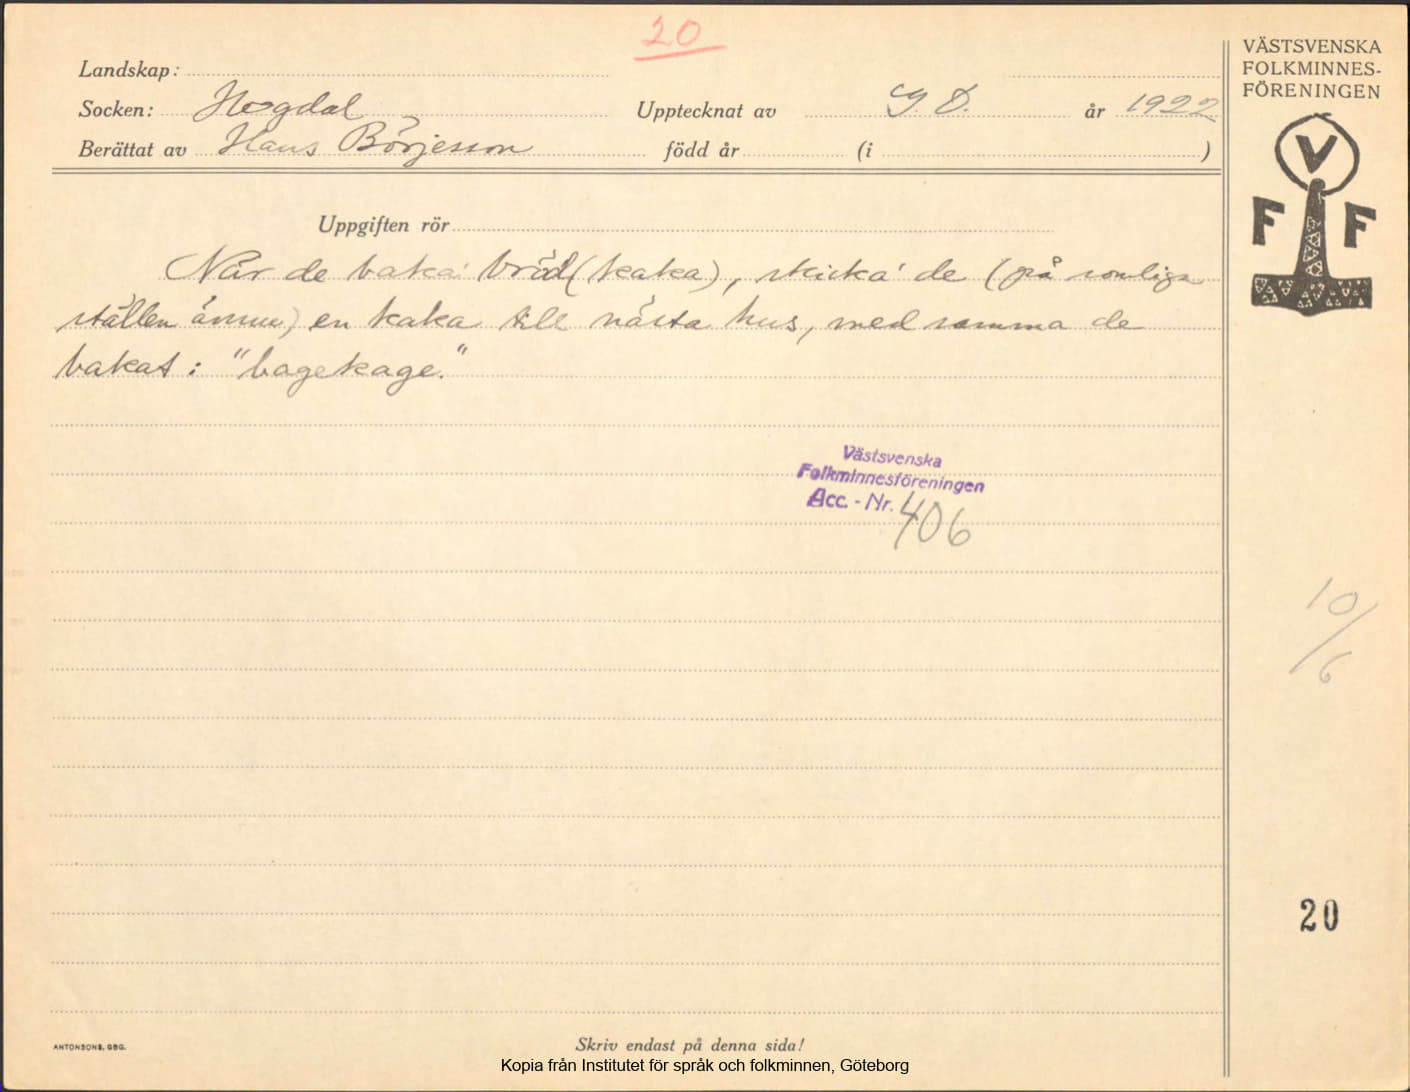 20
Landskap:
Socken: Hogdal Upptecknat av G. D. år 1922
Berättat av Hans Börjesson född år (i )
Uppgiften rör
När de baka bröd (kaka), skicka' de (på somliga
ställen ännu) en kaka till nästa hus, med samma de
bakat: "bagekage."
Västsvenska
Folkminnesföreningen
Acc. - Nr. 406
VÄSTSVENSKA
FOLKMINNES-
FÖRENINGEN
V
F F
10/6
20
ANTONSONS, GBG.
Skriv endast på denna sida!
Kopia från Institutet för språk och folkminnen, Göteborg